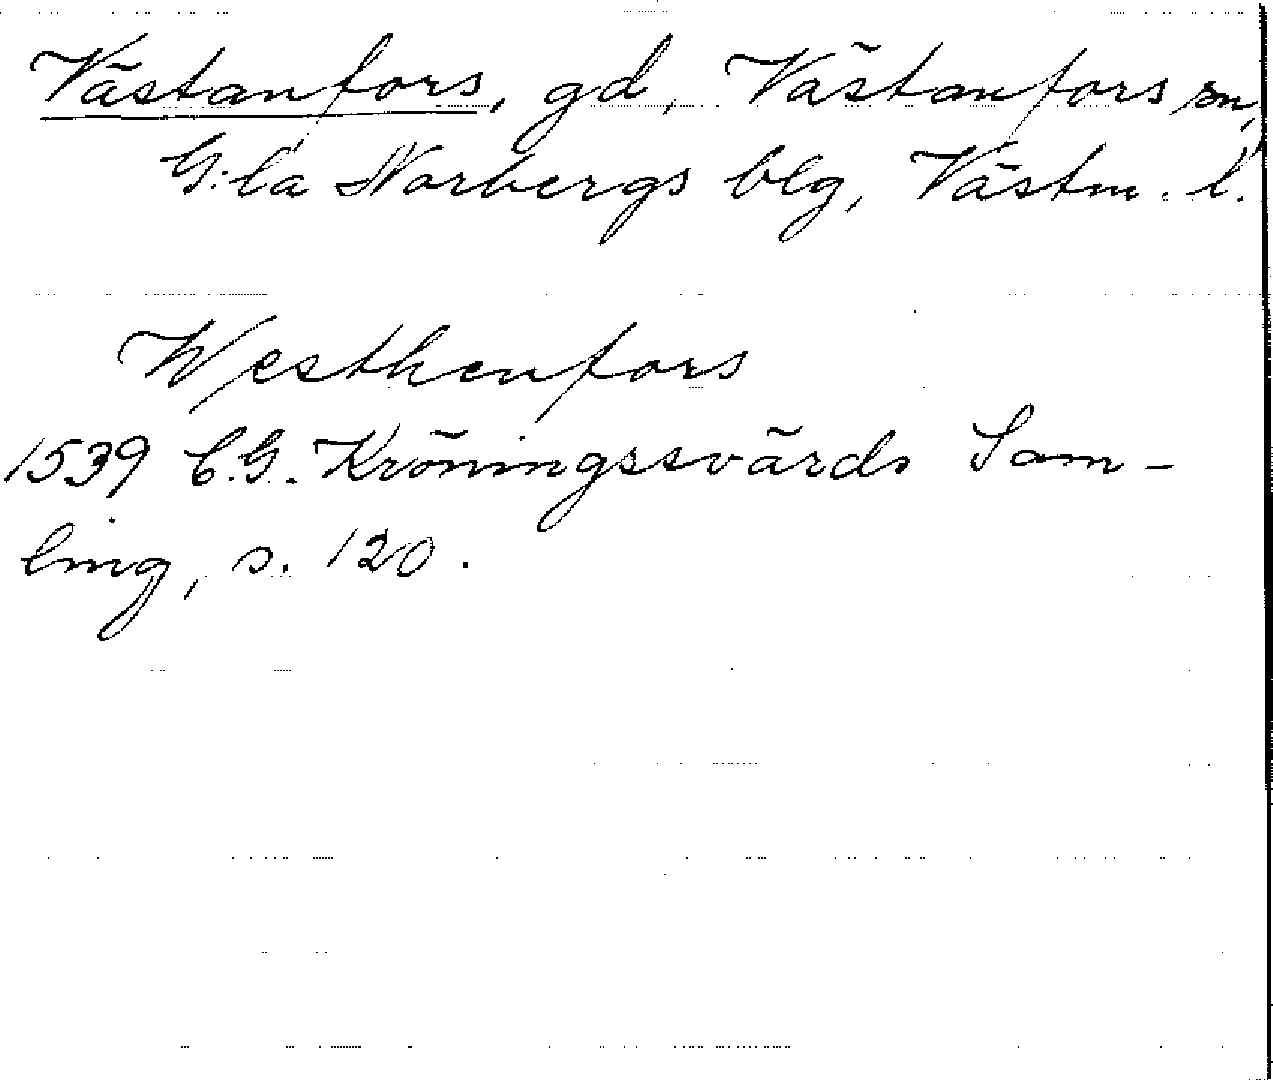 Västanfors, gd, Västanfors sn,
G:la Norbergs blg, Västm. l.
Westhenfors
1539 C.G. Kröningssvärds Sam-
ling, s. 120.